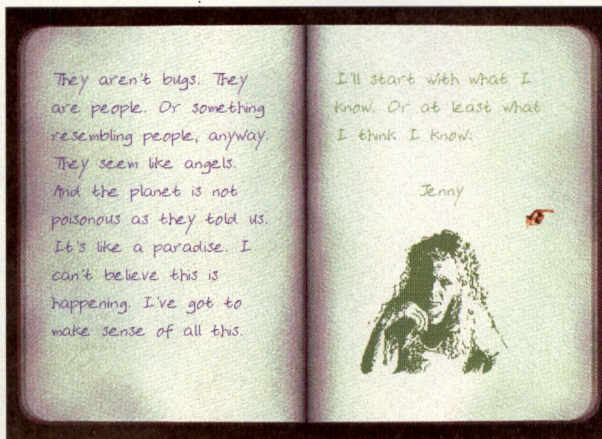 They aren't bugs. They
are people. Or something
resembling people, anyway.
They seem like angels.
And the planet is not
poisonous as they told us.
It's like a paradise. I
can't believe this is
happening. I've got to
make sense of all this.
I'll start with what I
know. Or at least what
I think I know:
Jenny